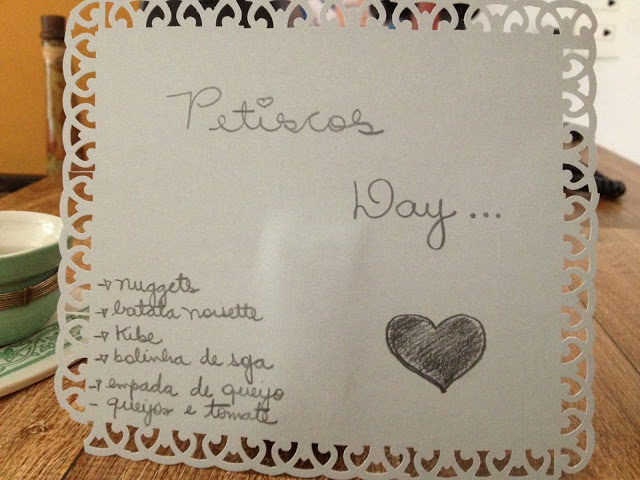 Petiscos
Day...
→ nuggets
→ batata noisette
→ Kibe
→ bolinha de soja
→ empada de queijo
- queijos e tomate